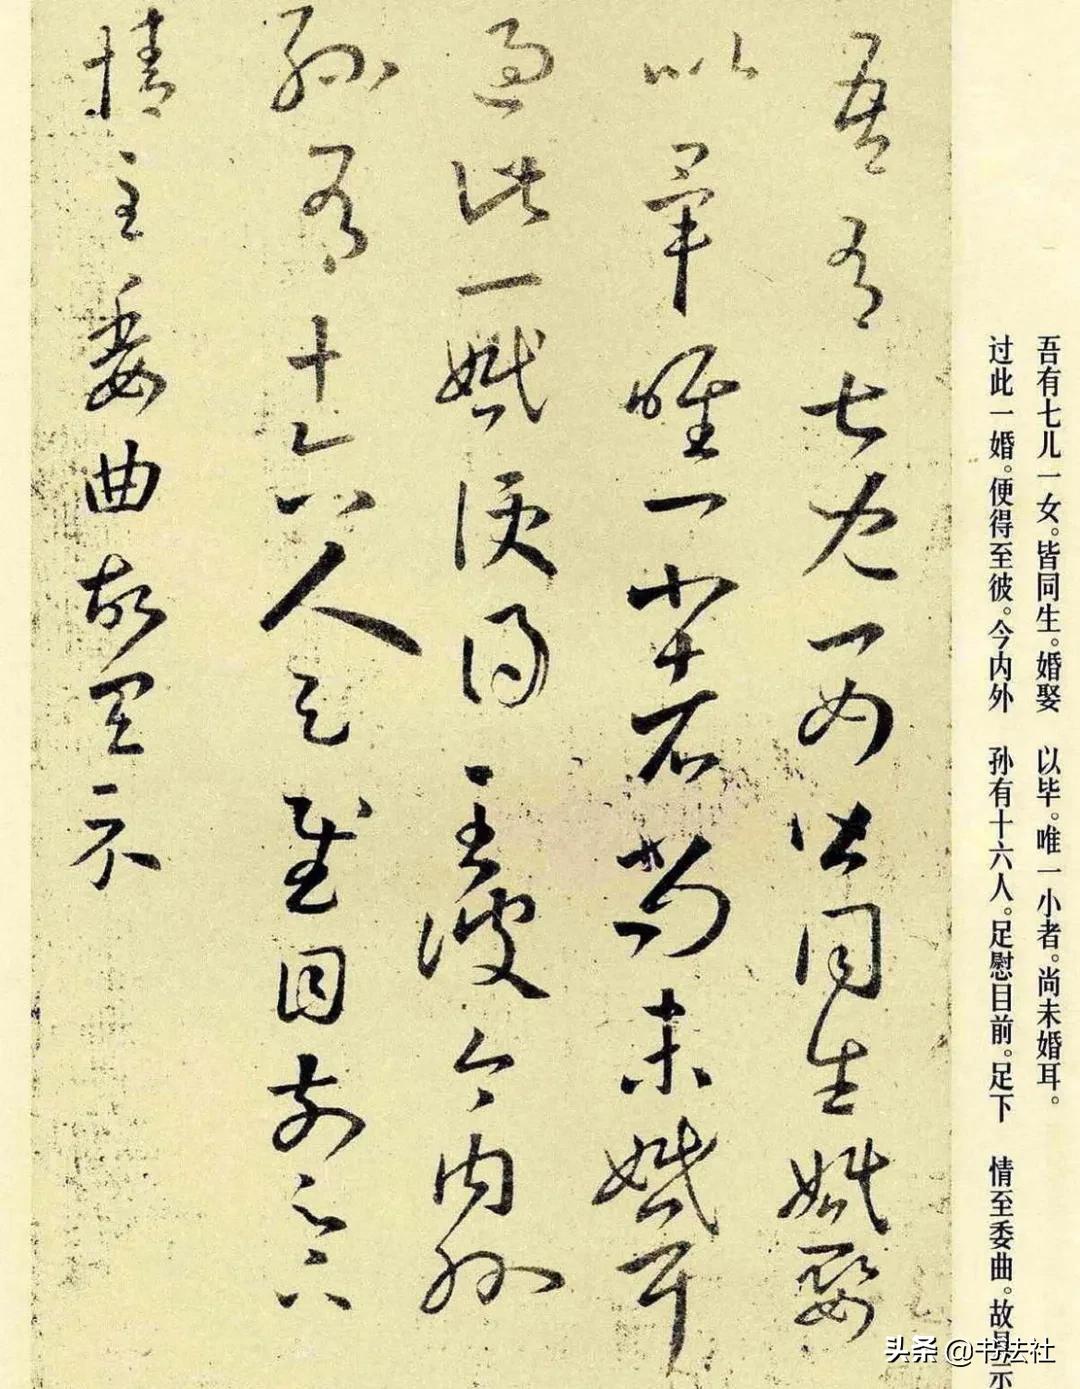 吾有七儿一女。皆同生。婚娶 以毕。唯一小者。尚未婚耳。
过此一婚。便得至彼。今内外 孙有十六人。足慰目前。足下 情至委曲。故具示
吾有七兒一女皆同生婚娶
以畢唯一小者尚未婚耳
過此一婚便得至彼今内外
孫有十六人足慰目前足下
情至委曲故具示
头条 @书法社